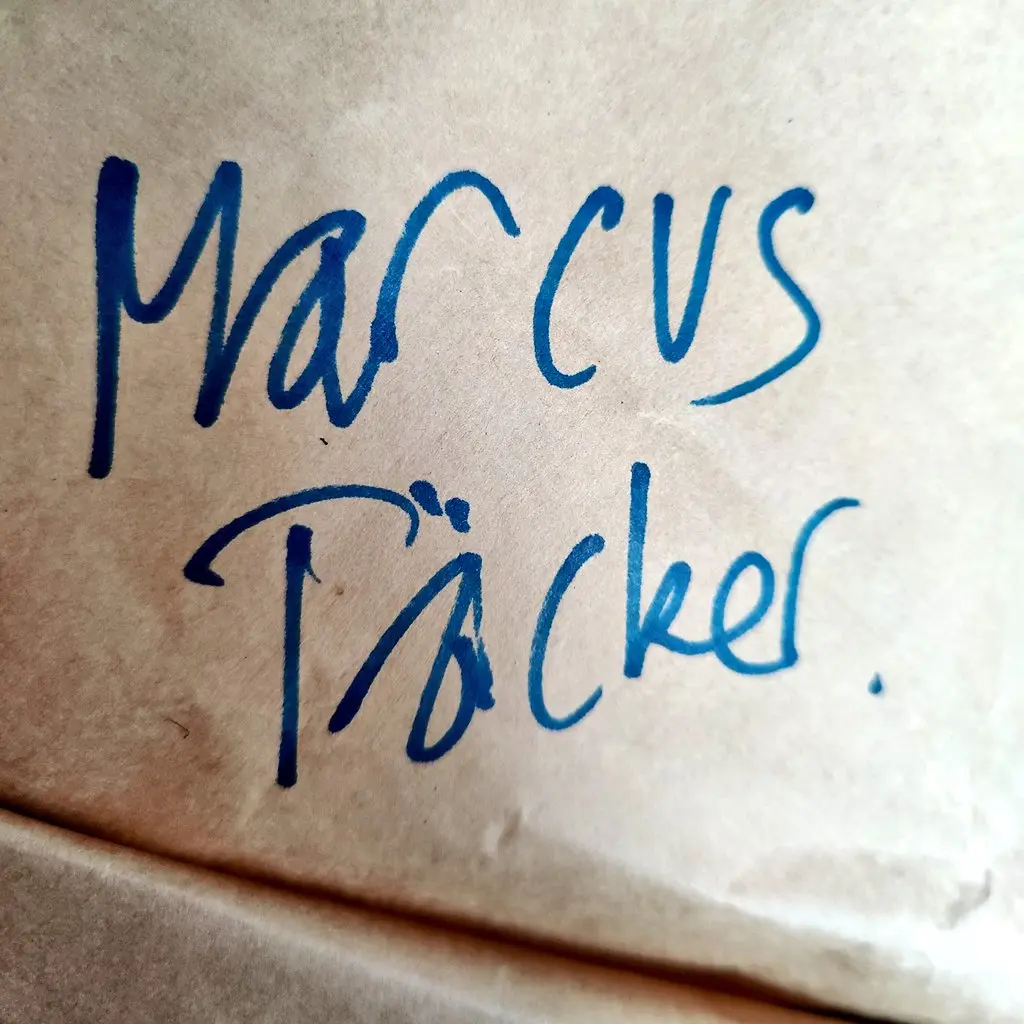 Marcus
Päcker.